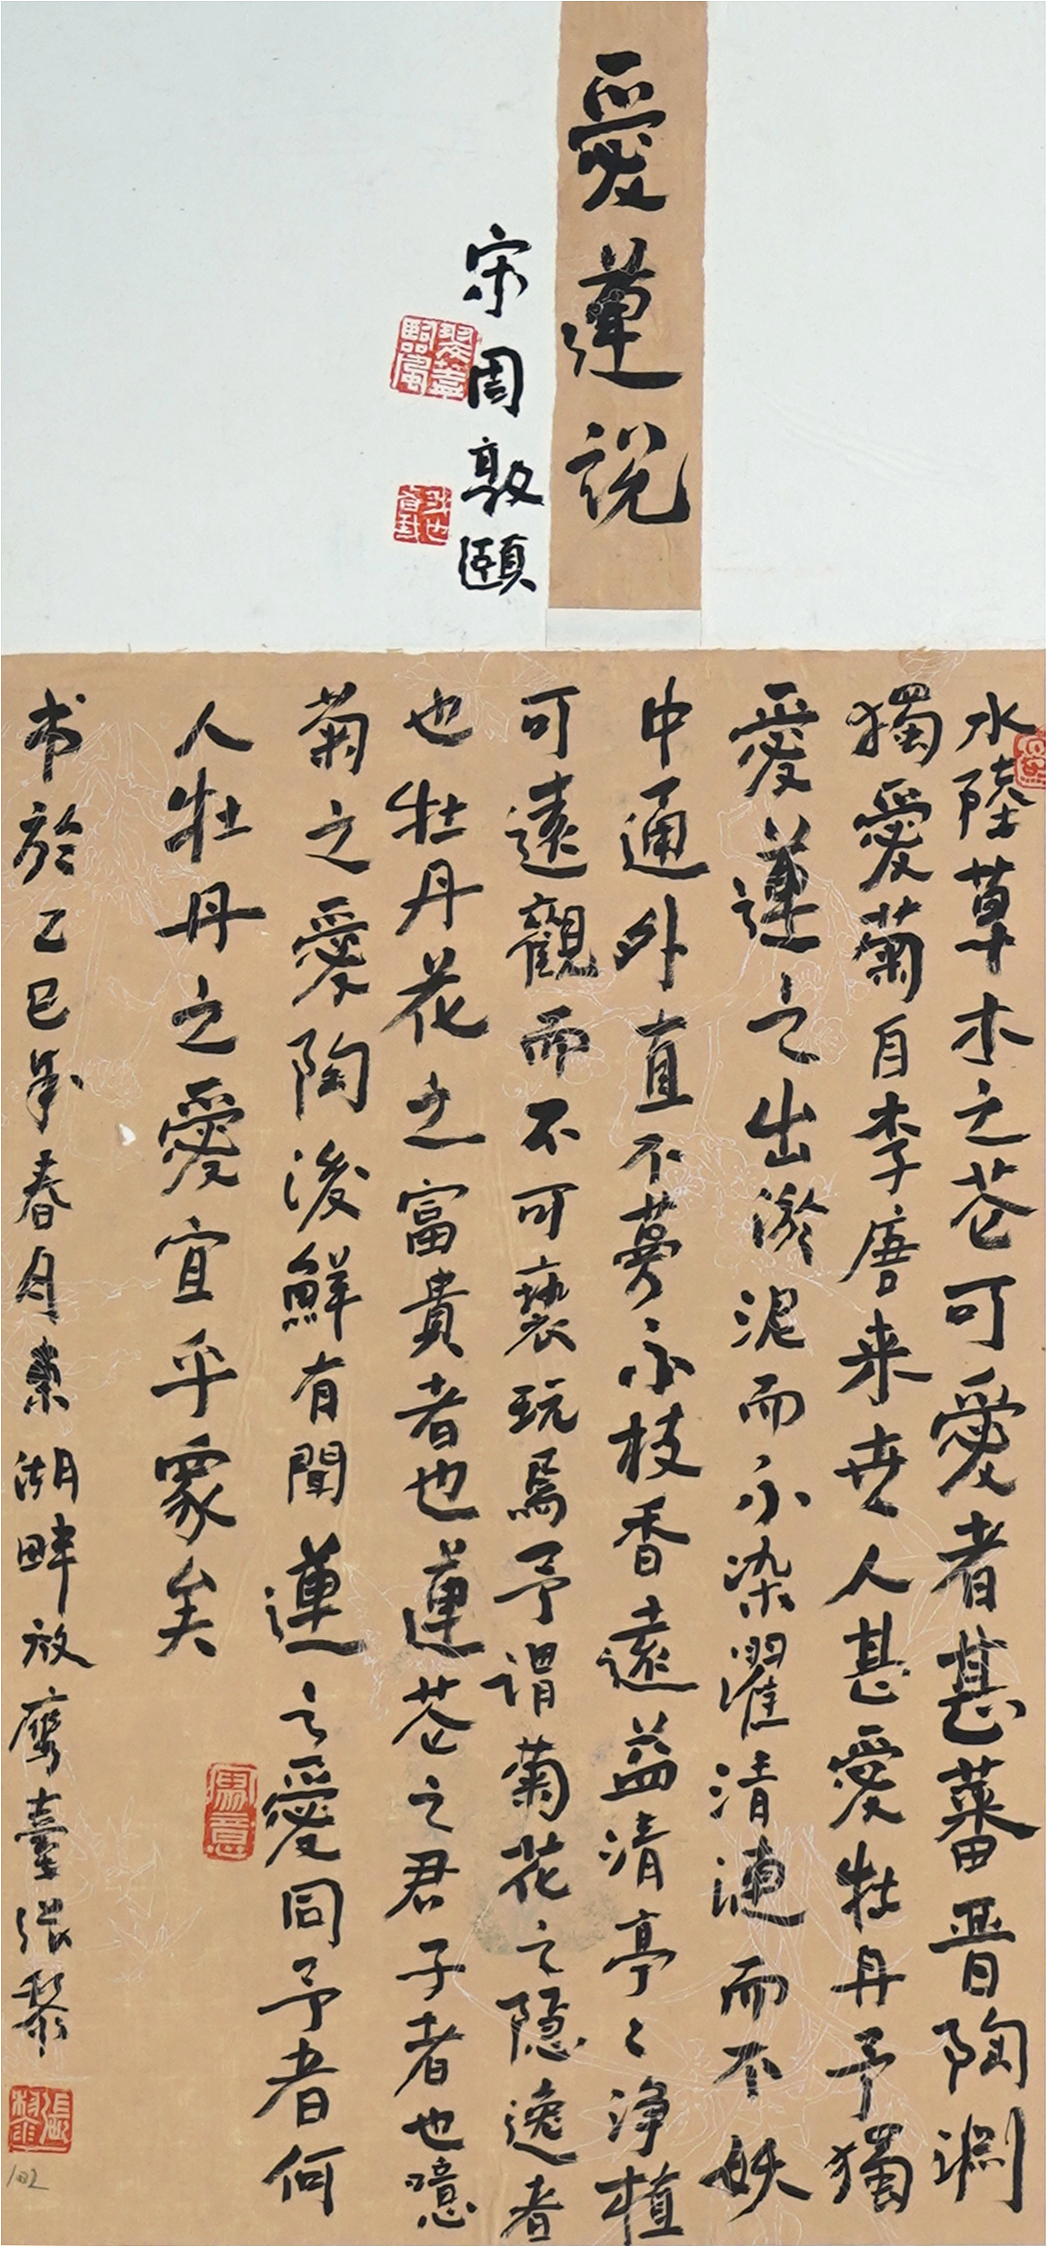 愛蓮説
宋周敦頤
水陸草木之花可愛者甚蕃晋陶渊
獨愛菊自李唐来世人甚愛牡丹予獨
愛蓮之出淤泥而不染濯清漣而不妖
中通外直不蔓不枝香遠益清亭〻净植
可遠觀而不可褻玩焉予謂菊花之隐逸者
也牡丹花之富貴者也蓮花之君子者也噫
菊之愛陶後鮮有聞蓮之愛同予者何
人牡丹之愛宜乎衆矣
书於乙巳年春月東湖畔放鹰臺張黎
寓意
102